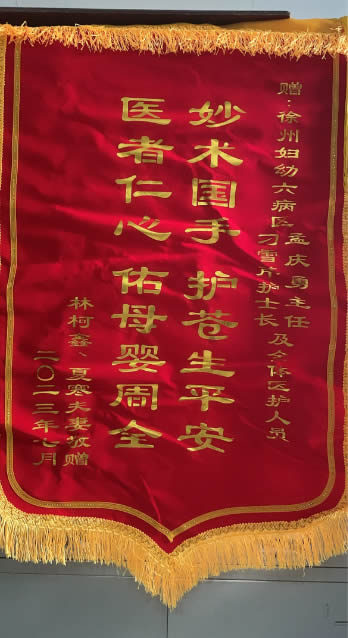 赠：徐州妇幼六病区孟庆勇主任
刁雪片护士长及全体医护人员
妙术国手 护苍生平安
医者仁心 佑母婴周全
林柯鑫、夏寒夫妻敬赠
二〇二三年七月